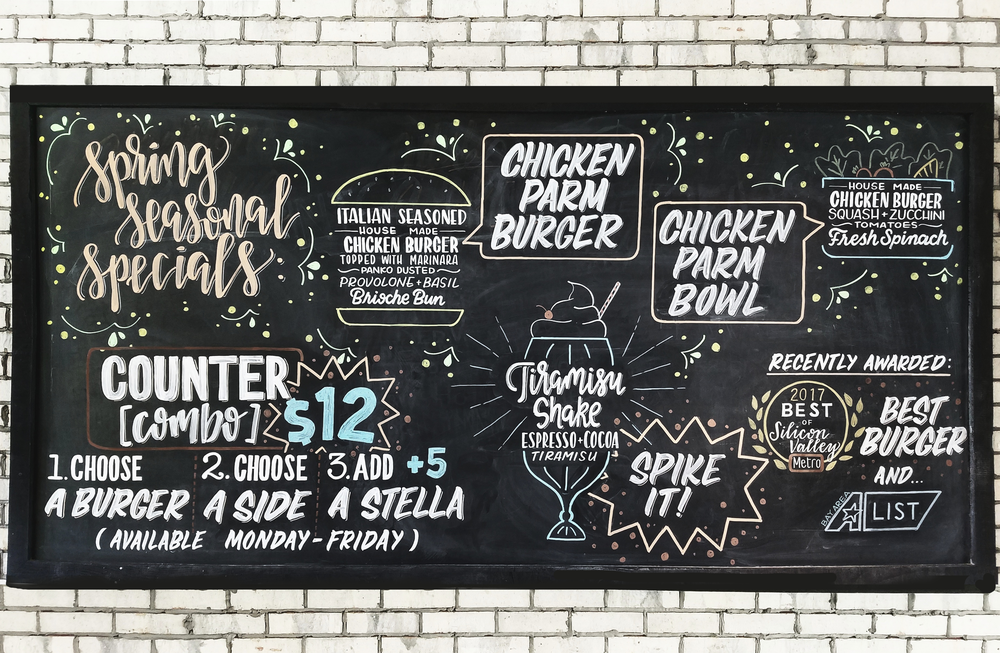 spring
seasonal
specials
ITALIAN SEASONED
HOUSE MADE
CHICKEN BURGER
TOPPED WITH MARINARA
PANKO DUSTED
PROVOLONE + BASIL
Brioche Bun
CHICKEN
PARM
BURGER
CHICKEN
PARM
BOWL
HOUSE MADE
CHICKEN BURGER
SQUASH + ZUCCHINI
TOMATOES
Fresh Spinach
COUNTER
[combo]
$12
1. CHOOSE
A BURGER
2. CHOOSE
A SIDE
3. ADD +5
A STELLA
( AVAILABLE MONDAY - FRIDAY )
Tiramisu
Shake
ESPRESSO + COCOA
TIRAMISU
SPIKE
IT!
RECENTLY AWARDED:
2017
BEST
of
Silicon
Valley
Metro
BEST
BURGER
AND...
BAY AREA
A LIST